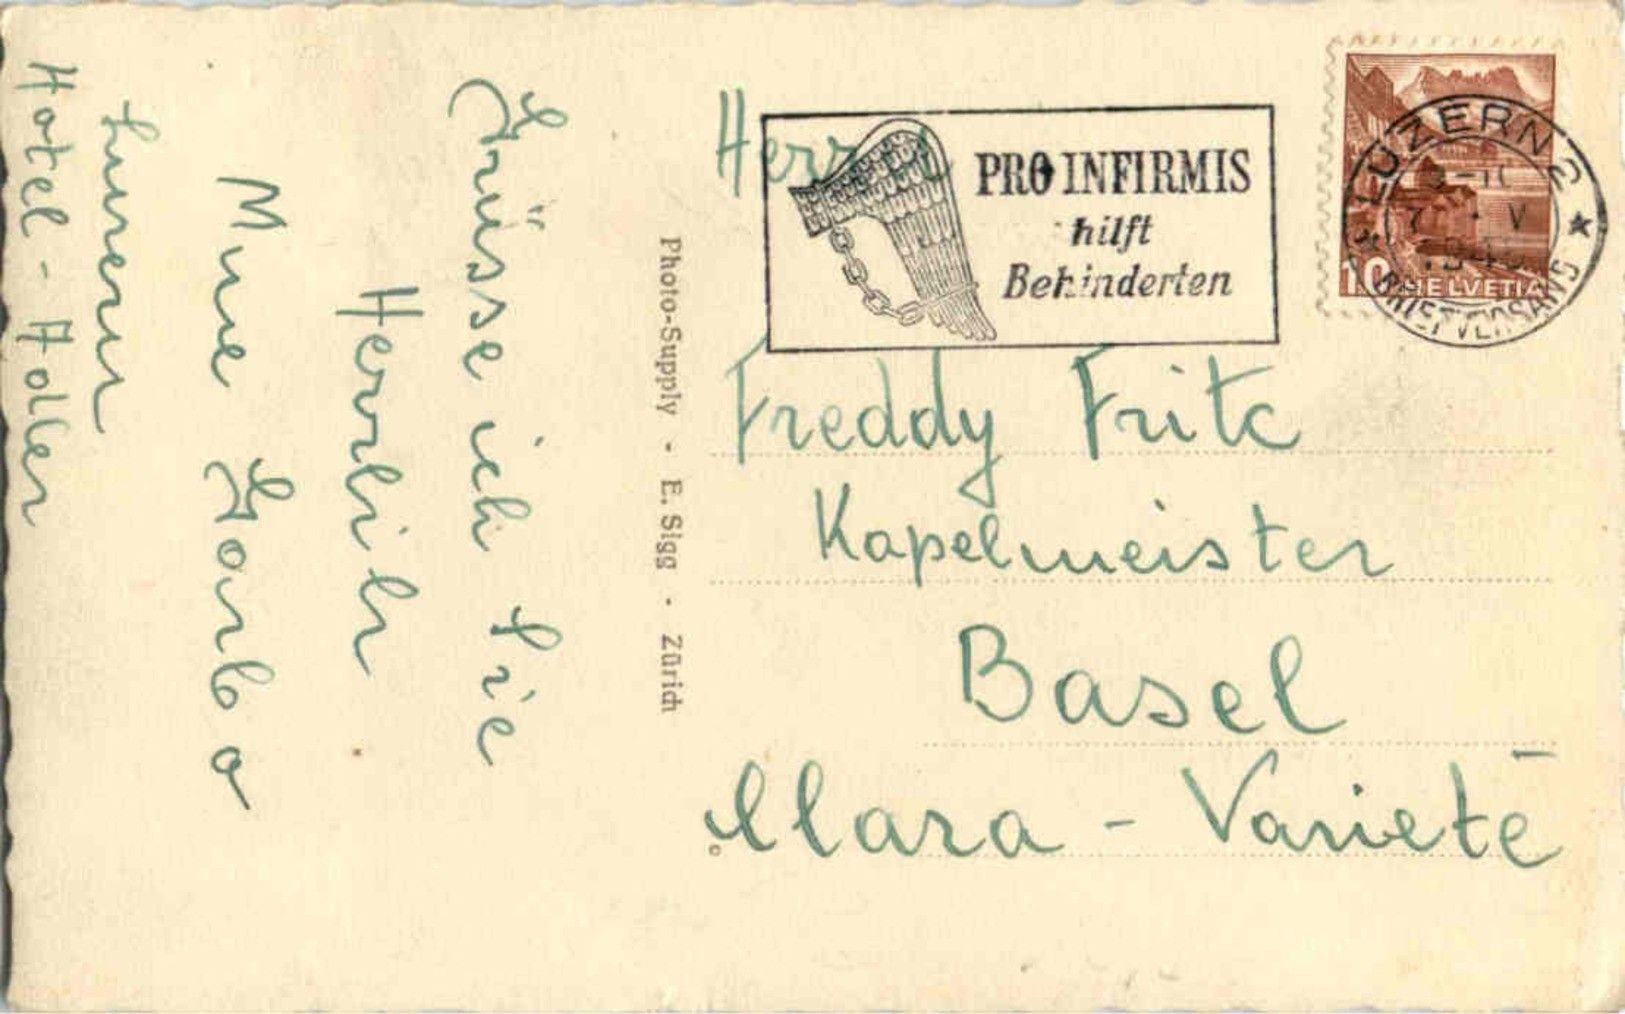 Grüsse ich Sie
Herrlich
Mme Garbo
Luzern
Hotel - Adler
Photo-Supply - E. Sigg - Zürich
Herr
PRO INFIRMIS
hilft
Behinderten
LUZERN 2
BRIEFVERSAND
V
10 HELVETIA
Freddy Fritz
Kapelmeister
Basel
Clara - Varieté